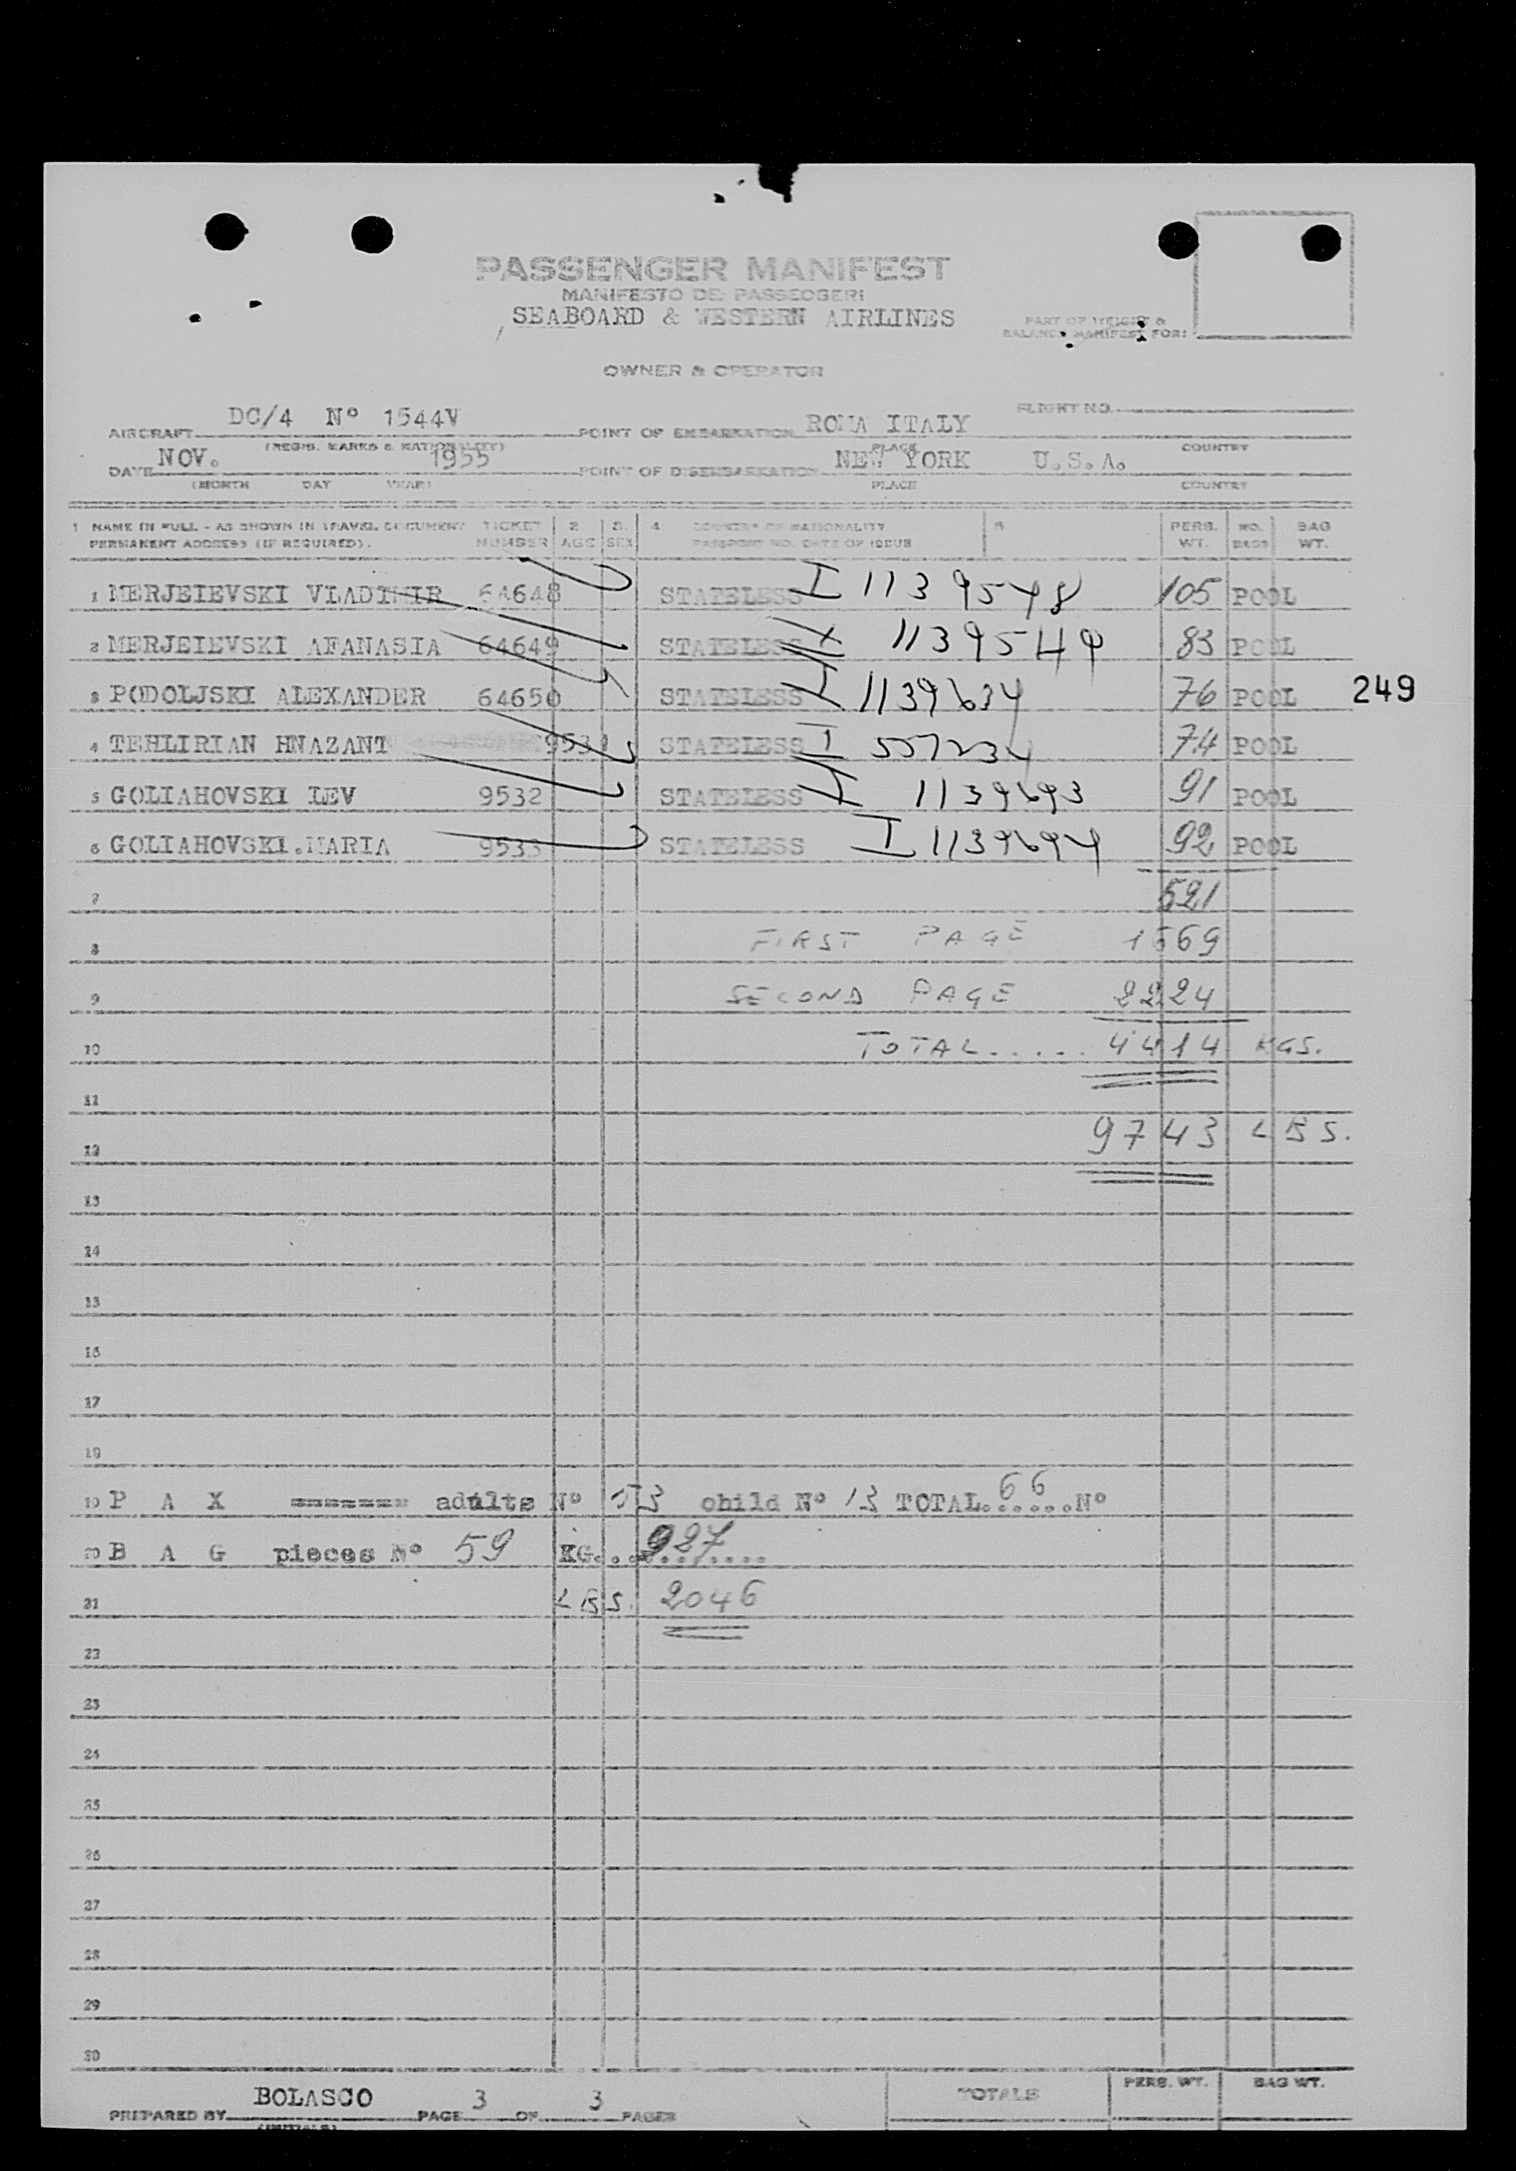 PASSENGER MANIFEST
MANIFESTO DEI PASSEGGERI
SEABOARD & WESTERN AIRLINES
PART OF WEIGHT &
BALANCE MANIFEST FOR:
OWNER & OPERATOR
FLIGHT NO.
AIRCRAFT DC/4 Nº 1544V POINT OF EMBARKATION ROMA ITALY
(REGIS. MARKS & NATIONALITY) PLACE COUNTRY
DATE NOV. 1955 POINT OF DISEMBARKATION NEW YORK U.S.A.
(MONTH DAY YEAR) PLACE COUNTRY
1 NAME IN FULL - AS SHOWN IN TRAVEL DOCUMENT TICKET 2 3. 4 COUNTRY OF NATIONALITY 5 PERS. NO. BAG
PERMANENT ADDRESS (IF REQUIRED). NUMBER AGE SEX PASSPORT NO. DATE OF ISSUE WT. BAGS WT.
1 MERJEIEVSKI VLADIMIR 64648 STATELESS I 1139548 105 POOL
2 MERJEIEVSKI AFANASIA 64649 STATELESS I 1139549 83 POOL
3 PODOLJSKI ALEXANDER 64650 STATELESS I 1139634 76 POOL
249
4 TEHLIRIAN HNAZANT STATELESS I 557234 74 POOL
5 GOLIAHOVSKI LEV 9532 STATELESS I 1139693 91 POOL
6 GOLIAHOVSKI.MARIA 9533 STATELESS I 1139694 92 POOL
7 521
8 FIRST PAGE 1669
9 SECOND PAGE 2224
10 TOTAL..... 4414 KGS.
11
12 9743 LBS.
13
14
15
16
17
18
19 P A X ======= adults Nº 53 child Nº 13 TOTAL.66.Nº
20 B A G pieces Nº 59 KG. 927
21 LBS. 2046
22
23
24
25
26
27
28
29
30
PREPARED BY BOLASCO PAGE 3 OF 3 PAGES TOTALS PERS. WT. BAG WT.
(INITIALS)